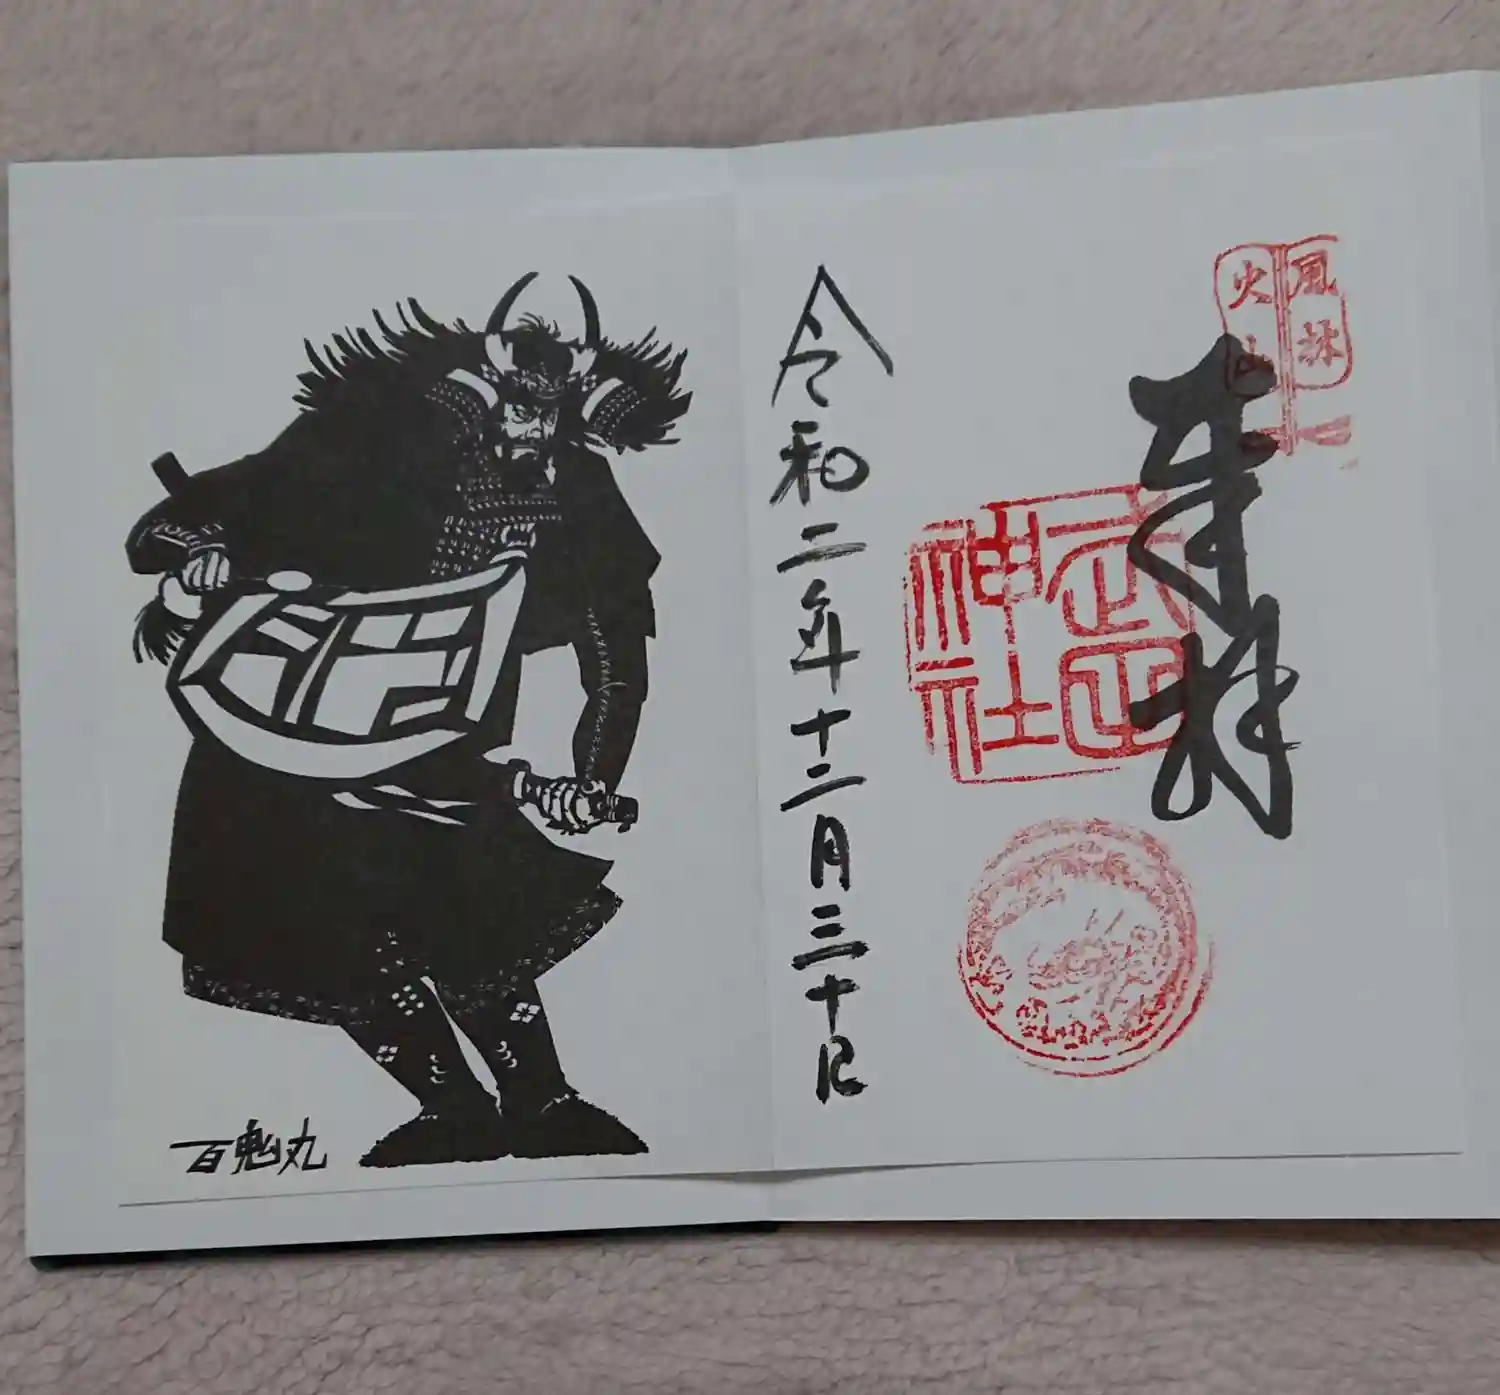 風林
火山
奉拝
武田
神社
令和二年十二月三十日
百鬼丸